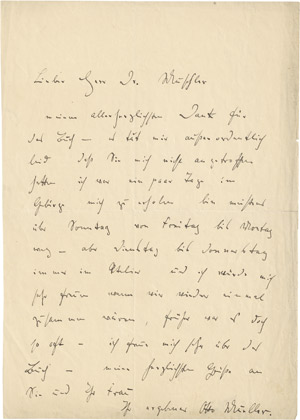 Lieber Herr Dr. Muschler
meinen allerherzlichsten Dank für
das Buch – es tut mir außerordentlich
leid daß Sie mich nicht angetroffen
hatten ich war ein paar Tage im
Gebirge mich zu erholen bin meistens
über Sonntag von Freitag bis Montag
weg – aber Dienstag bis Donnerstag
immer im Atelier und ich würde mich
sehr freuen wenn wir wieder einmal
zusammen wären, früher war es doch
so oft – ich freue mich sehr über das
Buch – meine herzlichsten Grüße an
Sie und Ihr Frau
Ihr ergebener Otto Mueller.